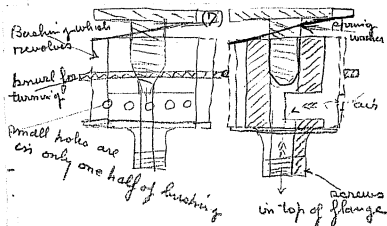 Bushing which
revolves
knurl for
turning
small holes are
in only one half of bushing
spring
washer
air
screws
in top of flange